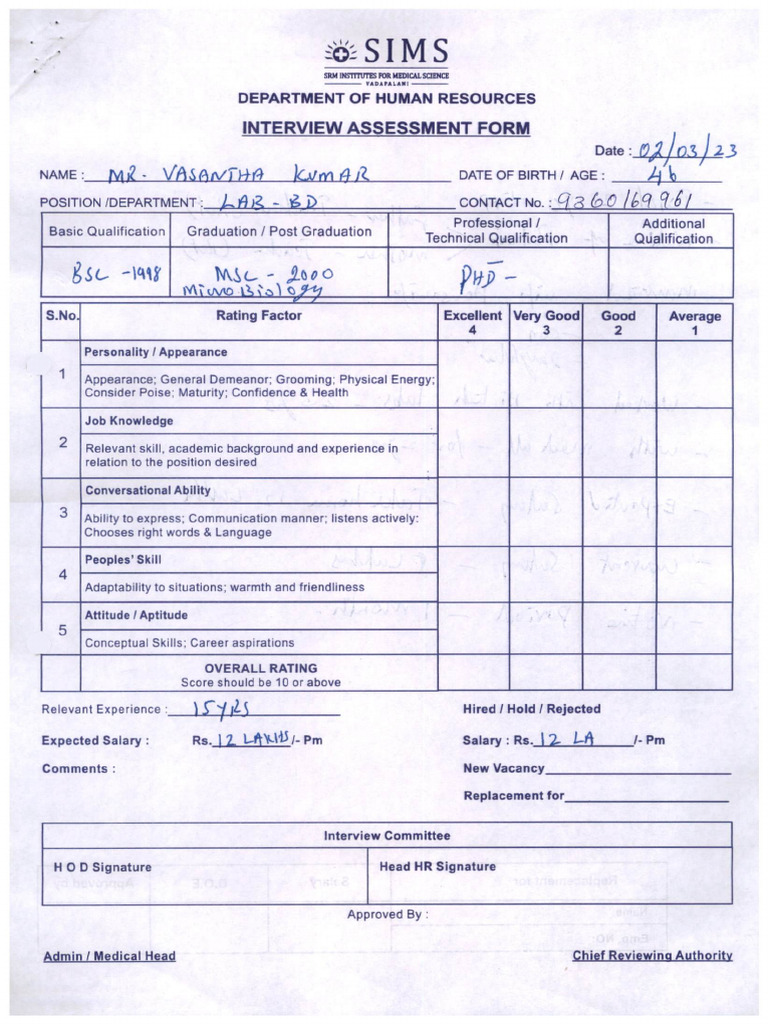 SIMS
SRM INSTITUTES FOR MEDICAL SCIENCE
VADAPALANI
DEPARTMENT OF HUMAN RESOURCES
INTERVIEW ASSESSMENT FORM
Date : 02/03/23
NAME : MR. VASANTHA KUMAR DATE OF BIRTH / AGE : 46
POSITION /DEPARTMENT : LAB - BD CONTACT No. : 9360169961
Basic Qualification Graduation / Post Graduation Professional / Technical Qualification Additional Qualification
BSC - 1998 MSC - 2000 MicroBiology PHD -
S.No. Rating Factor Excellent 4 Very Good 3 Good 2 Average 1
1 Personality / Appearance
Appearance; General Demeanor; Grooming; Physical Energy;
Consider Poise; Maturity; Confidence & Health
2 Job Knowledge
Relevant skill, academic background and experience in
relation to the position desired
3 Conversational Ability
Ability to express; Communication manner; listens actively:
Chooses right words & Language
4 Peoples' Skill
Adaptability to situations; warmth and friendliness
5 Attitude / Aptitude
Conceptual Skills; Career aspirations
OVERALL RATING
Score should be 10 or above
Relevant Experience : 15 YRS Hired / Hold / Rejected
Expected Salary : Rs. 12 LAKHS /- Pm Salary : Rs. 12 LA /- Pm
Comments : New Vacancy
Replacement for
Interview Committee
H O D Signature Head HR Signature
Approved By :
Admin / Medical Head Chief Reviewing Authority